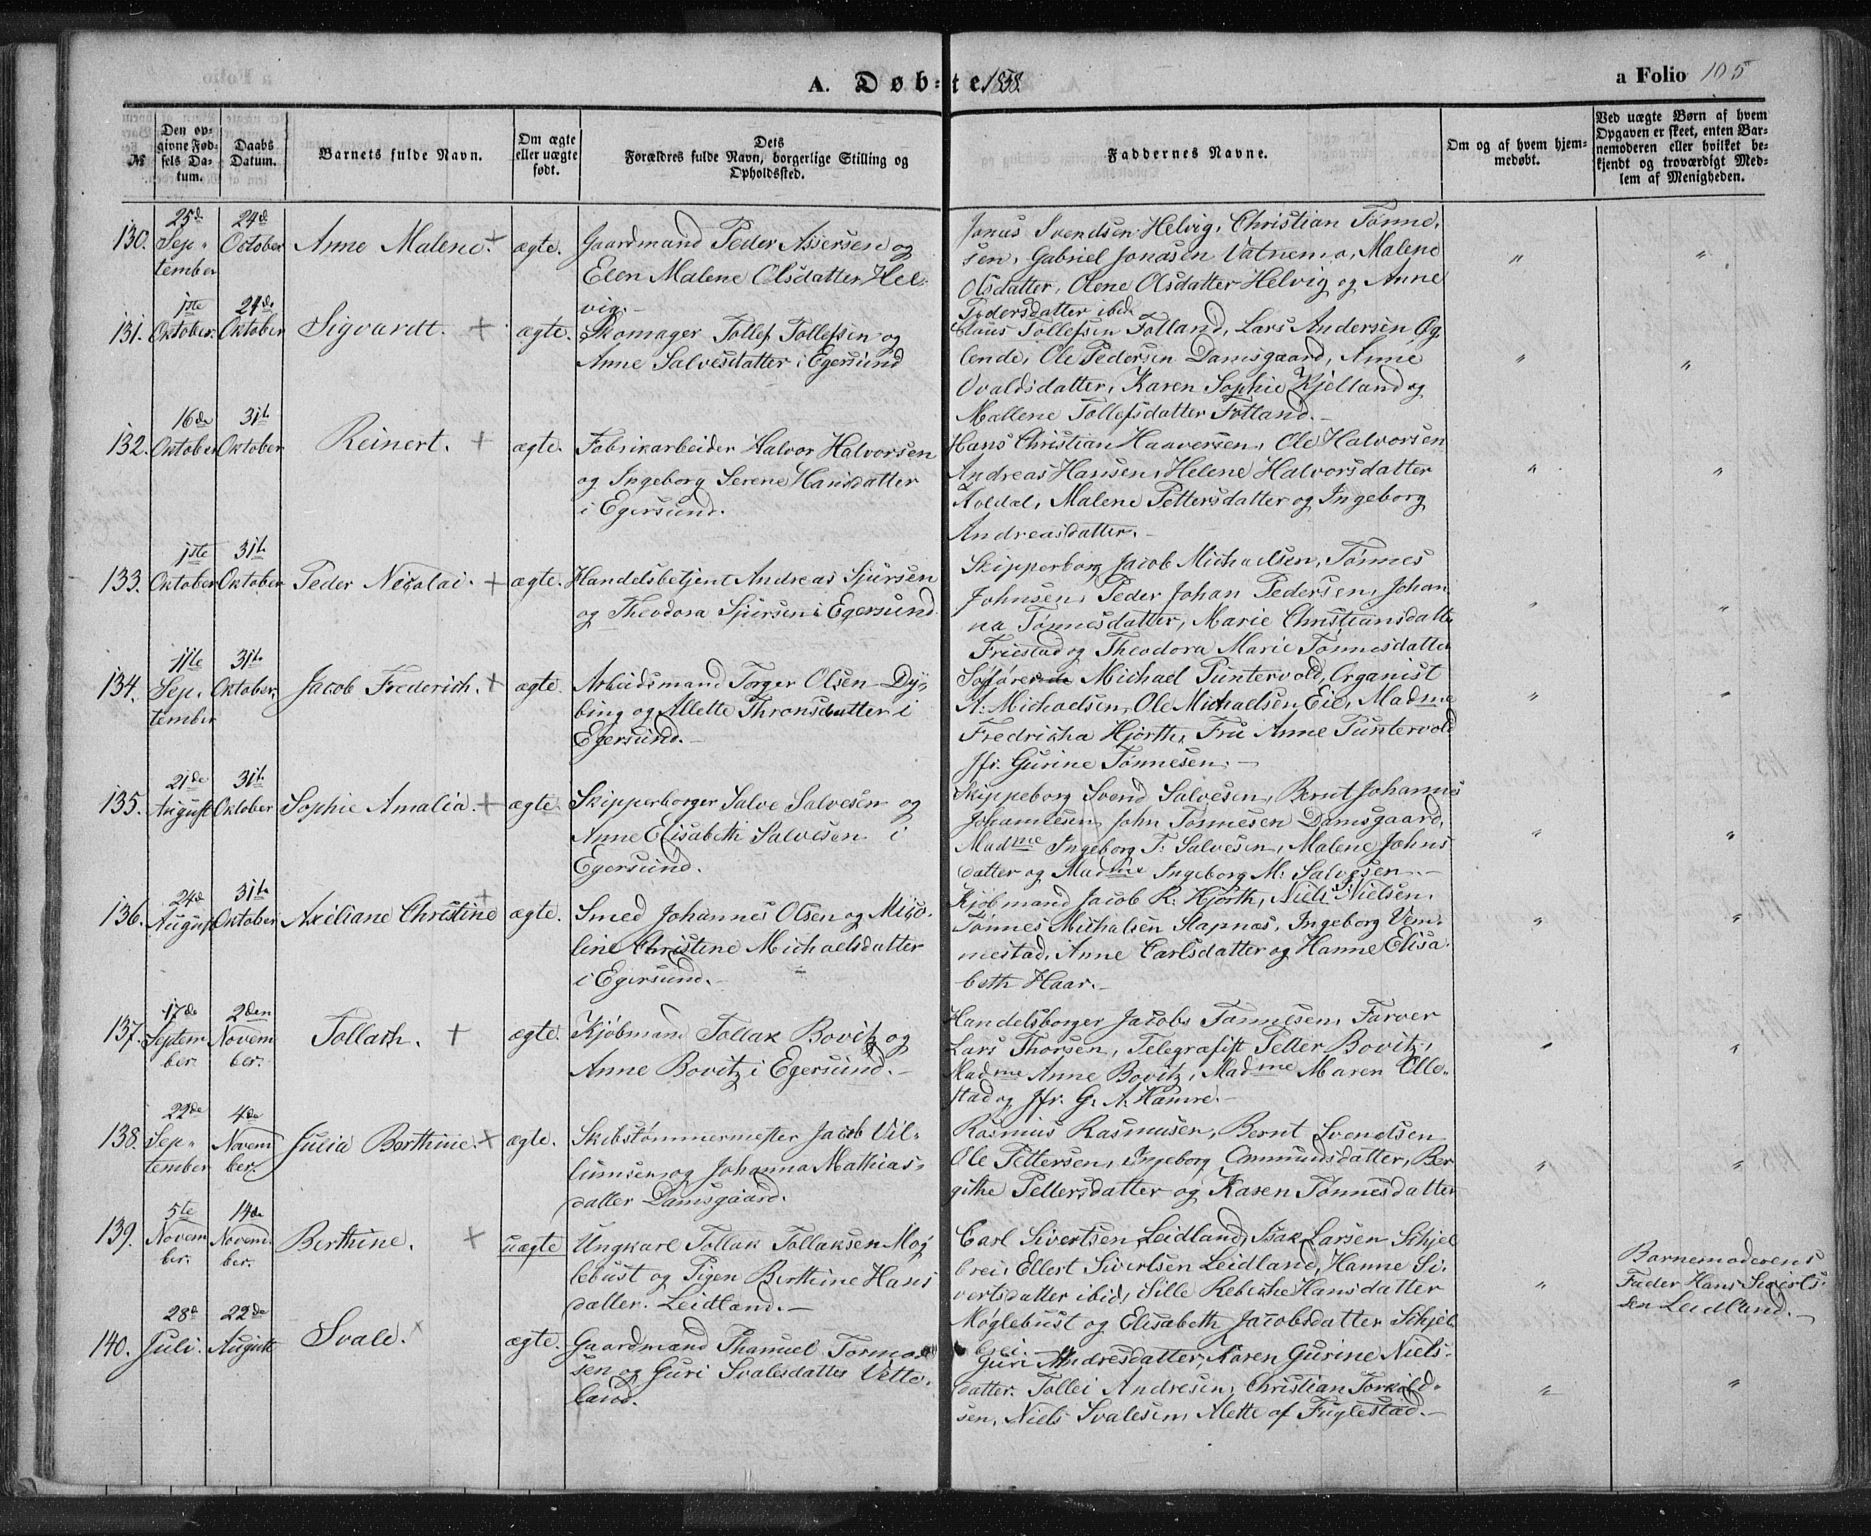 A. Døbte 1858.
a Folio 105
№
Den opgivne Fødsels Datum.
Daabs Datum.
Barnets fulde Navn.
Om ægte eller uægte født.
Dets Forældres fulde Navn, borgerlige Stilling og Opholdsted.
Faddernes Navne.
Om og af hvem hjemmedøbt.
Ved uægte Børn af hvem Opgaven er skeet, enten Barnemoderen eller hvilket bekjendt og troværdigt Medlem af Menigheden.
130.
25de September
24de October
Anne Malene. +
ægte.
Gaardmand Peder Assersen og
Elen Malene Olsdatter Hel-
vig. –
Jonas Svendsen Helvig, Christian Tønne,
sen, Gabriel Jonasen Vatnemo, Malene
Olsdatter, Olene Olsdatter Helvig og Anne
Pedersdatter ibid.
"
"
131.
1ste October.
24de Oktober
Sigvardt. +
ægte.
Skomager Tollef Tollefsen og
Anne Salvesdatter i Egersund
Claus Tollefsen Fotland, Lars Andersen Øg
lende, Ole Pedersen Damsgaard, Anne
Ovaldsdatter, Karen Sophie Kjelland og
Mallene Tollefsdatter Fotland. –
"
"
132.
16de Oktober
31te Oktober
Reinert. +
ægte.
Fabrikarbeider Halvor Halvorsen
og Ingeborg Serene Hansdatter
i Egersund.
Hans Christian Haaversen, Ole Halvorsen
Andreas Hansen, Helene Halvorsdatter
Avldal, Malene Pettersdatter og Ingeborg
Andreasdatter. –
"
"
133.
1ste Oktober
31te Oktober
Peder Nicolai. +
ægte.
Handelsbetjent Andreas Sjursen
og Theodora Sjursen i Egersund.
Skipperborg Jacob Michaelsen, Tønnes
Johnsen, Peder Johan Pedersen, Johan
na Tønnesdatter, Marie Christiansdatte
Friestad og Theodora Marie Tønnesdatter
"
"
134.
11te September
31te Oktober.
Jacob Frederich. +
ægte.
Arbeidsmand Torger Olsen Dy-
bing og Allette Thronsdatter i
Egersund. –
Søfører Michael Puntervold, Organist
A. Michaelsen, Ole Michaelsen Eie, Madme
Fredrikka Hjorth, Fru Anne Puntervold
Jfr. Gurine Tønnesen. –
"
"
135.
21de August
31te Oktober
Sophie Amalia. +
ægte.
Skipperborger Salve Salvesen og
Anne Elisabeth Salvesen i
Egersund.
Skippeborg Svend Salvesen, Bernt Johannes
Johannesen, John Tønnesen Damsgaard,
Madme Ingeborg T. Salvesen, Malene Johns
datter og Madme Ingeborg M. Salvesen. –
"
"
136.
24de August
31te Oktober
Axeliane Christine +
ægte.
Smed Johannes Olsen og Miso-
line Christine Michaelsdatter
i Egersund. –
Kjøbmand Jacob R. Hjorth, Niels Nielsen,
Tønnes Michalsen Slapnæs, Ingeborg Vem-
mestad, Anne Carlsdatter og Hanne Elisa-
beth Haar. –
"
"
137.
17de September.
2den November.
Tollach. +
ægte.
Kjøbmand Tollak Bovitz og
Anne Bovitz i Egersund. –
Handelsborger Jacobs Tønnesen, Farver
Lars Thorsen, Telegrafist Petter Bovitz,
Madme Anne Bovitz, Madme Maren Elle-
stad og Jfr. G. A. Hamre. –
"
"
138.
22de September
4de November.
Julia Berthine. +
ægte.
Skibstømmermester Jacob Vil-
lumsen og Johanna Mathias-
datter Damsgaard.
Rasmus Rasmusen, Bernt Svendsen
Ole Pettersen, Ingeborg Ommundsdatter, Ber
githe Pettersdatter og Karen Tønnesdatter
"
"
139.
5te November.
14de November.
Berthine. +
uægte
Ungkarl Tollak Tollaksen Møg
lebust og Pigen Berthine Hans
datter Leidland. –
Carl Sivertsen Leidland, Isak Larsen Schjel
brei, Ellert Sivertsen Leidland, Hanne Si-
vertsdatter ibid, Sille Rebekke Hansdatter
Møglebust og Elisabeth Jacobsdatter Schjel
brei. –
"
Barnemoderens
Fader Hans Siverts-
sen Leidland. –
140.
28de Juli.
22de August
Svale. +
ægte.
Gaardmand Thamuel Tormod
sen og Guri Svalesdatter Vette-
land.
Guri Andresdatter, Karen Gurine Niels-
datter. Tollei Andresen, Christian Torkild-
sen, Niels Svalesen, Mette af Fuglestad. –
"
"